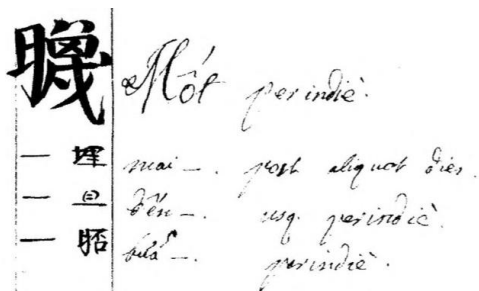 Mốt perindiè.
— 埋 mai —. post aliquot dies.
— 旦 đến —. usq. perindiè.
— bữa —. perindiè.